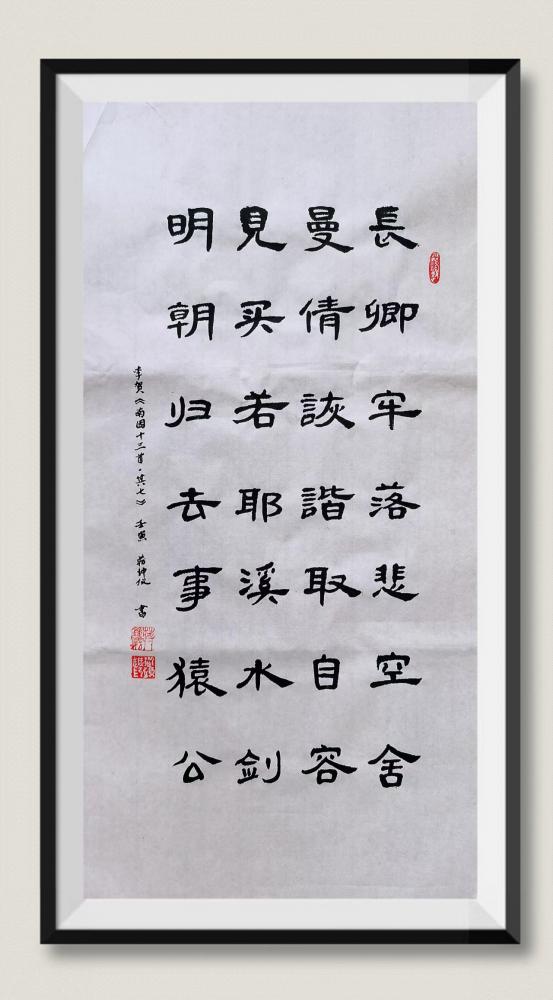 長卿牢落悲空舍
曼倩詼諧取自容
見买若耶溪水剑
明朝归去事猿公
李贺《南园十三首·其七》 壬寅 书